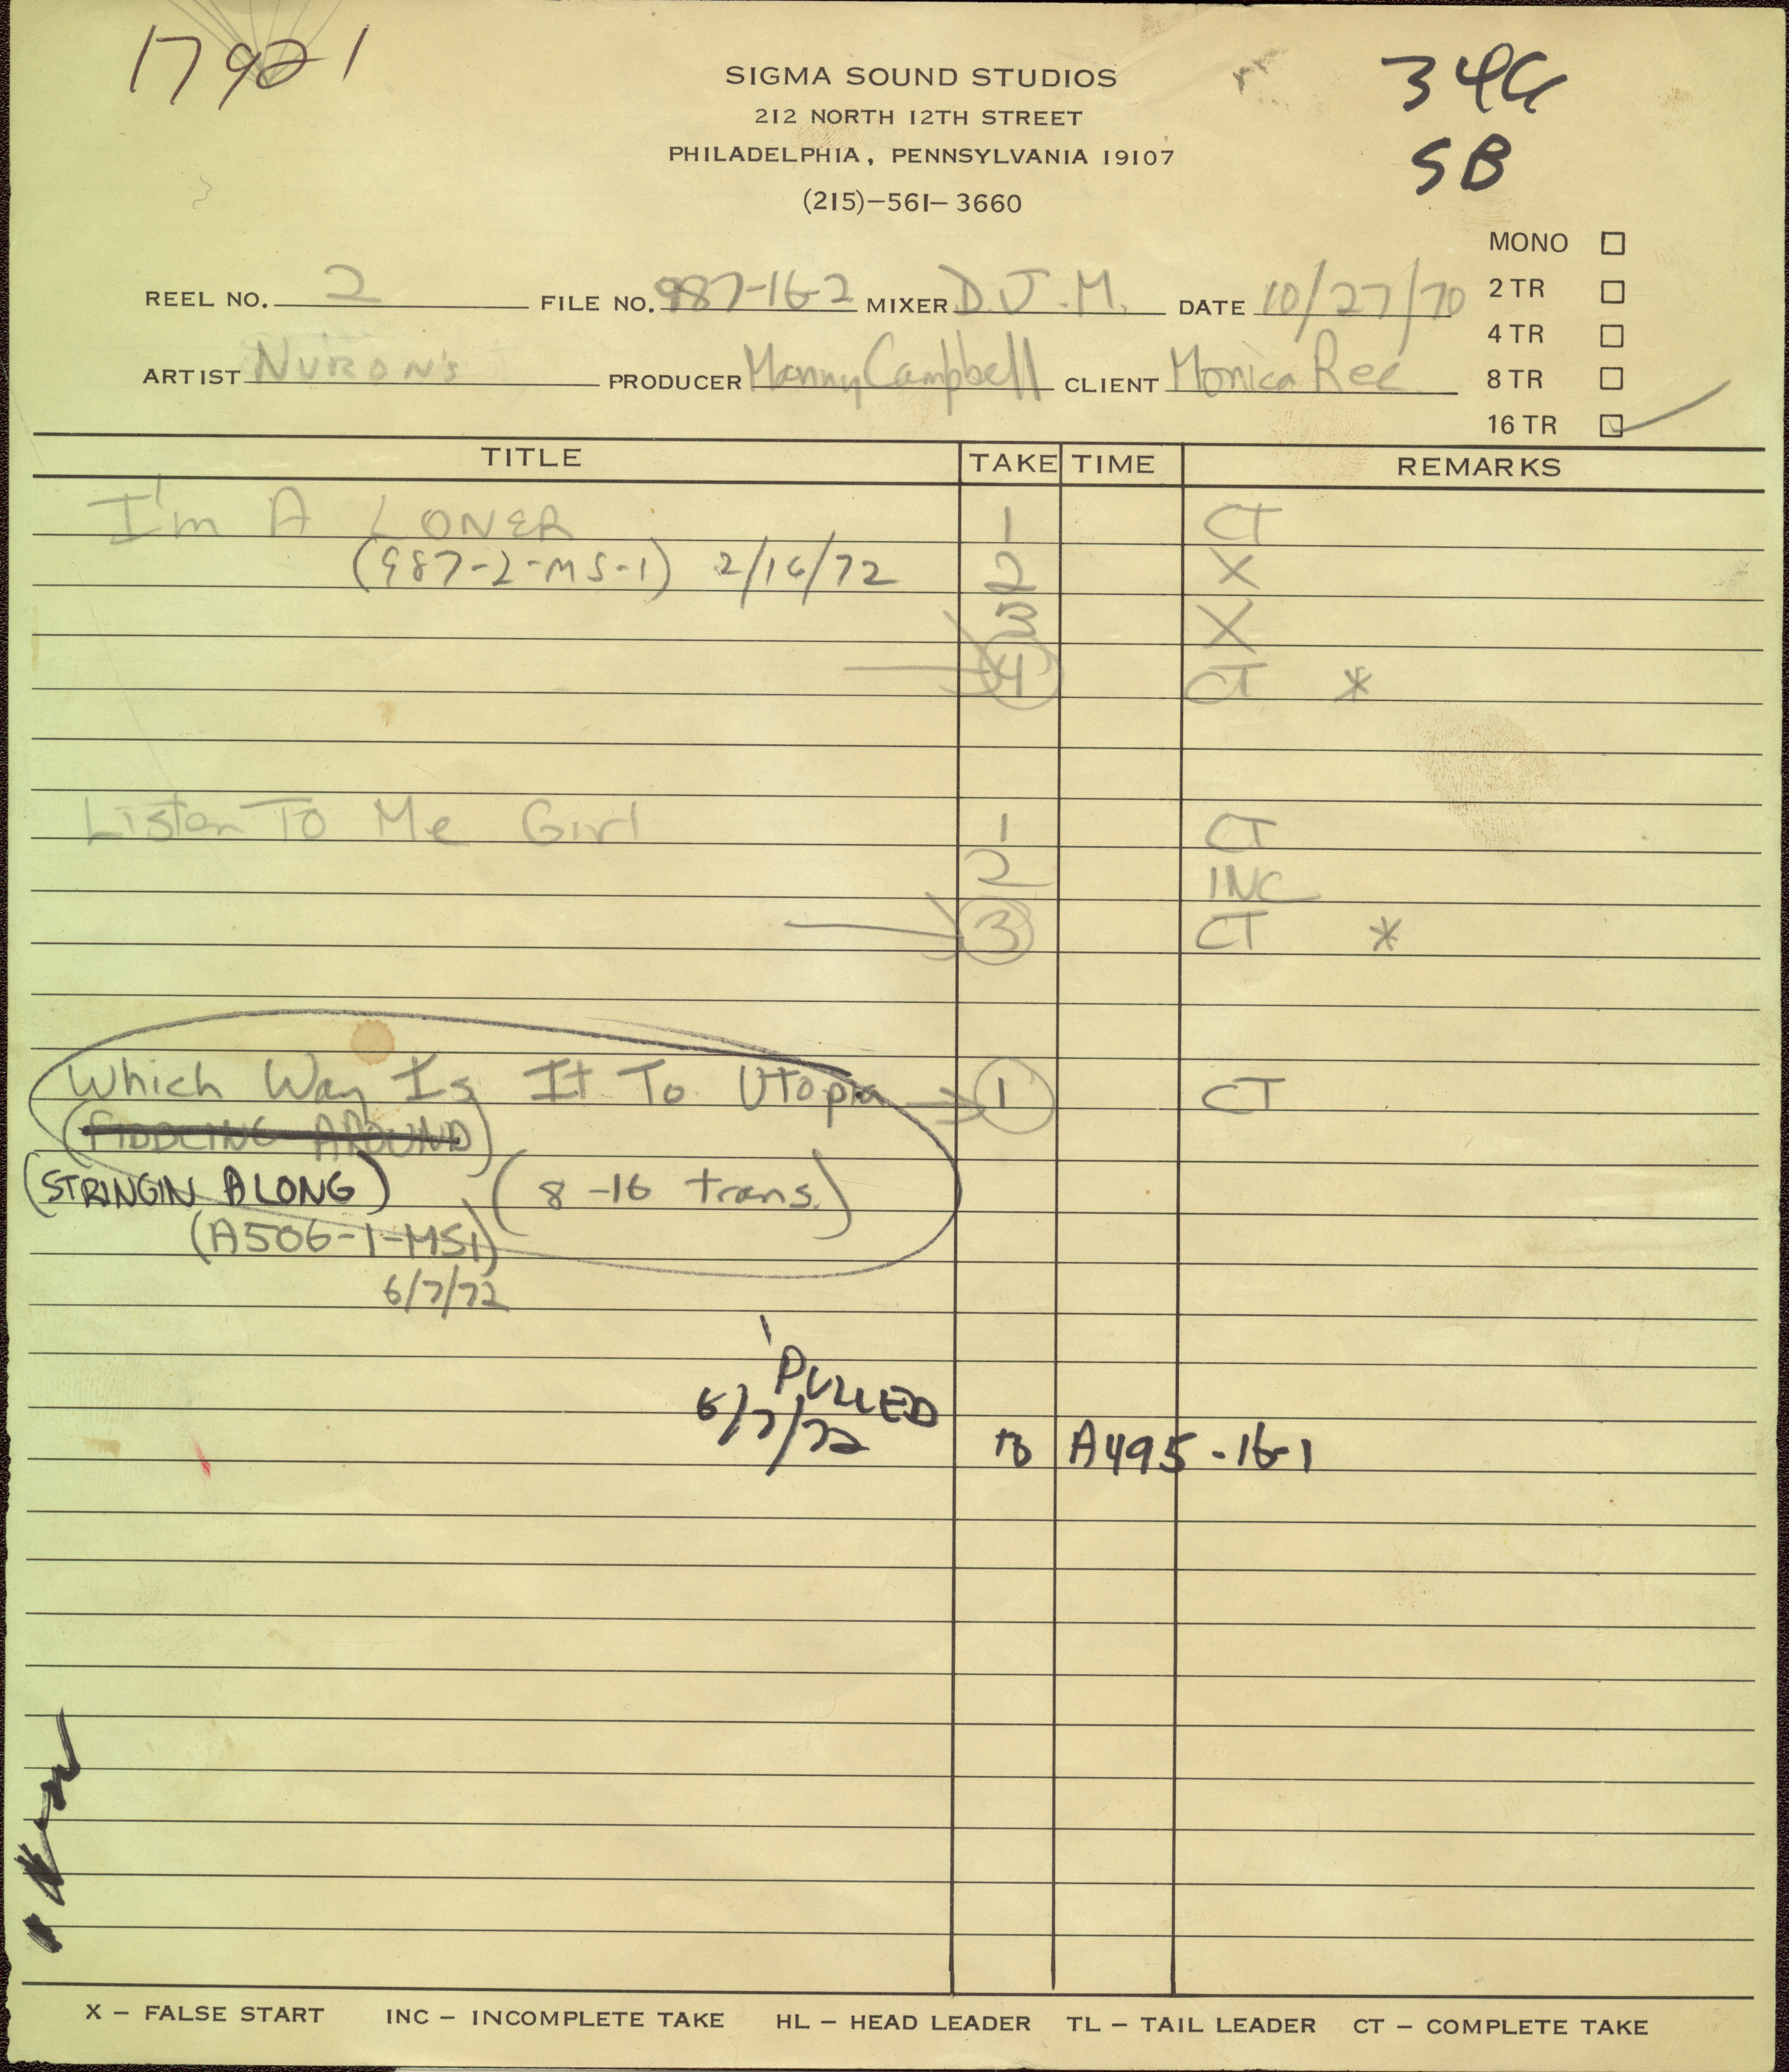 17921
SIGMA SOUND STUDIOS
212 NORTH 12TH STREET
PHILADELPHIA, PENNSYLVANIA 19107
(215)-561-3660
SB
MONO
2 TR
4 TR
8 TR
16 TR
REEL NO. 2 FILE NO. 987-16-2 MIXER D.J.M. DATE 10/27/70
ARTIST NURON'S PRODUCER Manny Campbell CLIENT Monica Rec
TITLE TAKE TIME REMARKS
I'm A LONER 1 CT
(987-2-MS-1) 2/16/72 2 X
3 X
4 CT *
Listen To Me Girl 1 CT
2 INC
3 CT *
Which Way Is It To Utopia 1 CT
(FIDDLING AROUND)
(STRINGIN ALONG) (8-16 trans.)
(A506-1-MS1)
6/7/72
PULLED
6/7/72 to A495-16-1
X – FALSE START INC – INCOMPLETE TAKE HL – HEAD LEADER TL – TAIL LEADER CT – COMPLETE TAKE